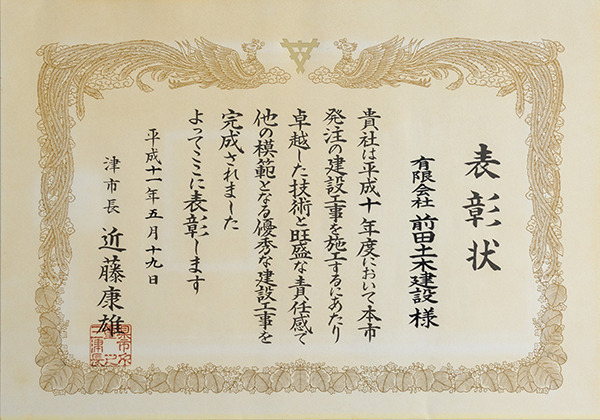 表彰状
有限会社 前田土木建設 様
貴社は平成十年度において本市
発注の建設工事を施工するにあたり
卓越した技術と旺盛な責任感で
他の模範となる優秀な建設工事を
完成されました
よってここに表彰します
平成十一年五月十九日
津市長 近藤康雄